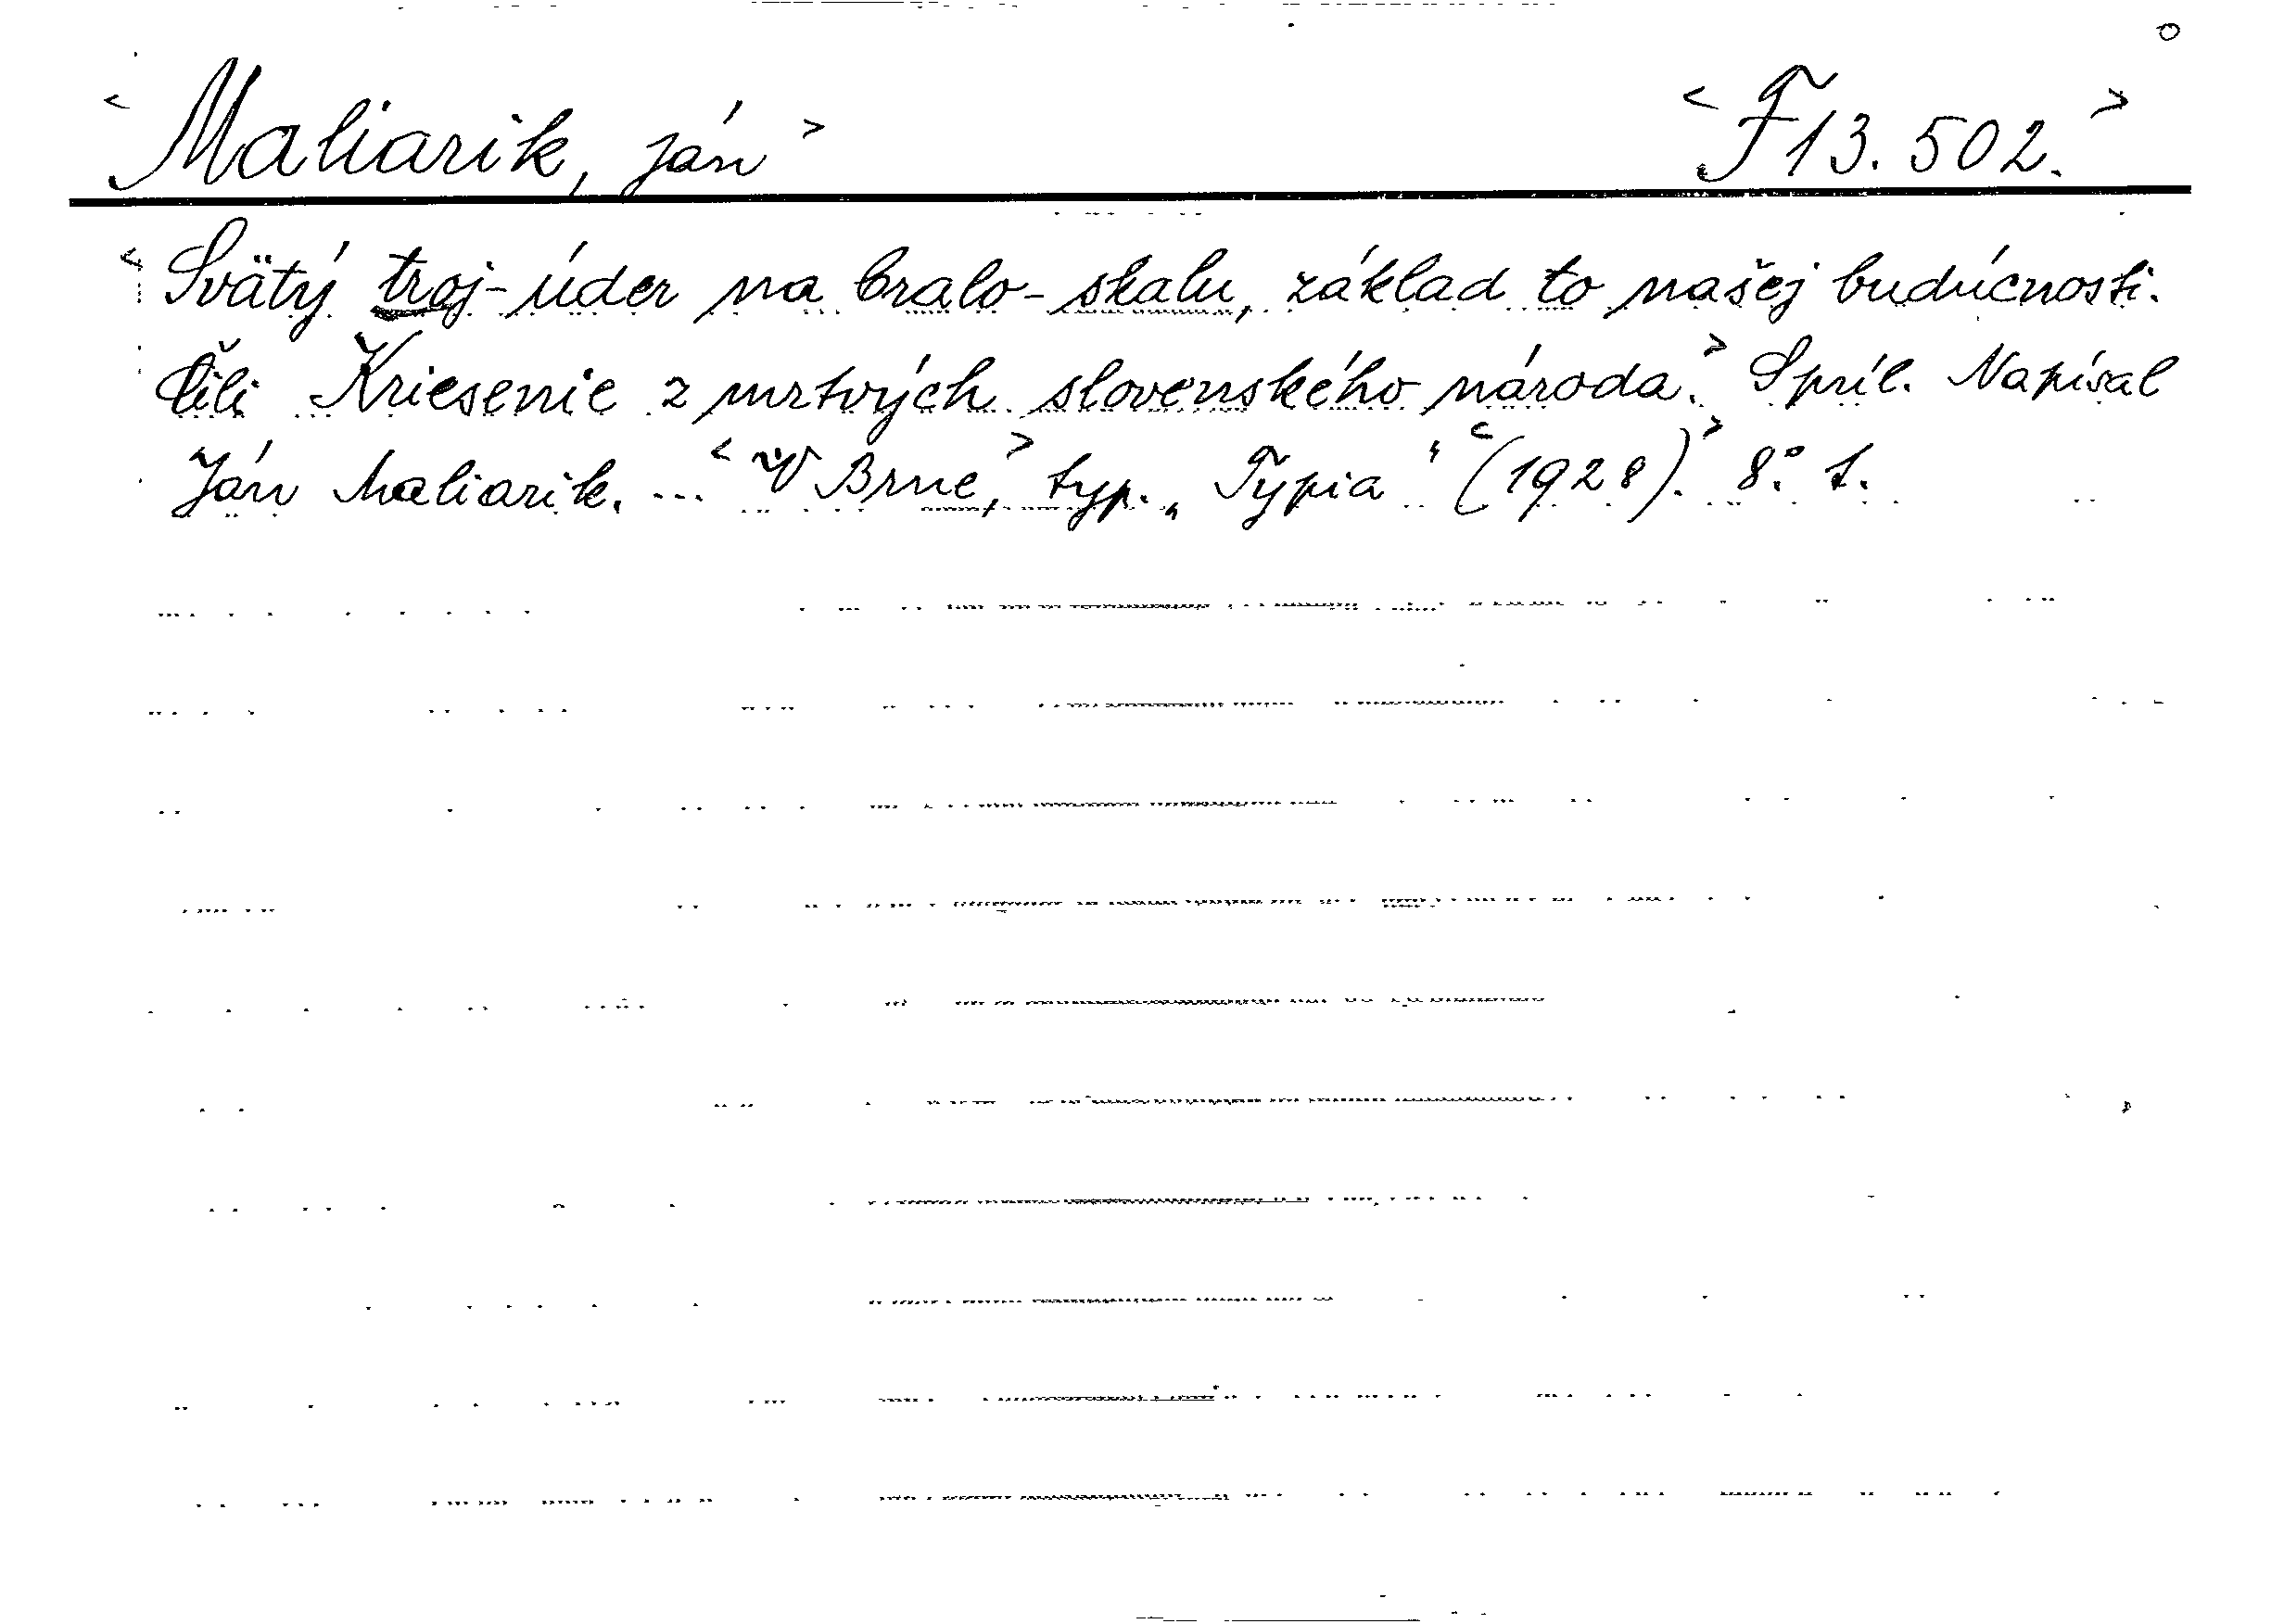 <Maliarik, Ján> <F13.502.>
<Svätý troj-úder na bralo-skalu, základ to našej budúcnosti.
Čili Kriesenie z mrtvých slovenského národa.> S príl. Napísal
Ján Maliarik. ... <V Brne,> typ. „Typia“ <(1928).> 8°. 1.